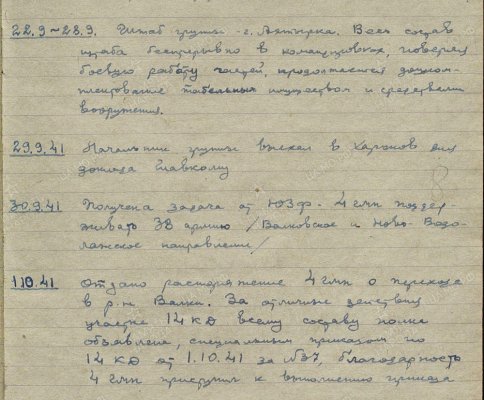 22.9~28.9. Штаб группы - г. Ахтырка. Весь состав
штаба беспрерывно в командировках, проверяя
боевую работу частей, продолжается доуком-
плектование табельным имуществом и средствами
вооружения.
29.9.41 Начальник группы выехал в Харьков для
доклада Главкому
30.9.41 Получена задача от ЮЗФ - 4 гмп поддер-
живать 38 армию /Валковское и Ново-Водо-
лажское направления/
1.10.41 Отдано распоряжение 4 гмп о переходе
в р-н Валки. За отличные действия
участке 14 КД всему составу полка
объявлена, специальным приказом по
14 КД от 1.10.41 за №37, благодарность
4 гмп приступил к выполнению приказа